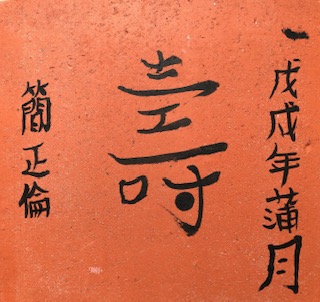 一戊戌年蒲月
壽
簡正倫